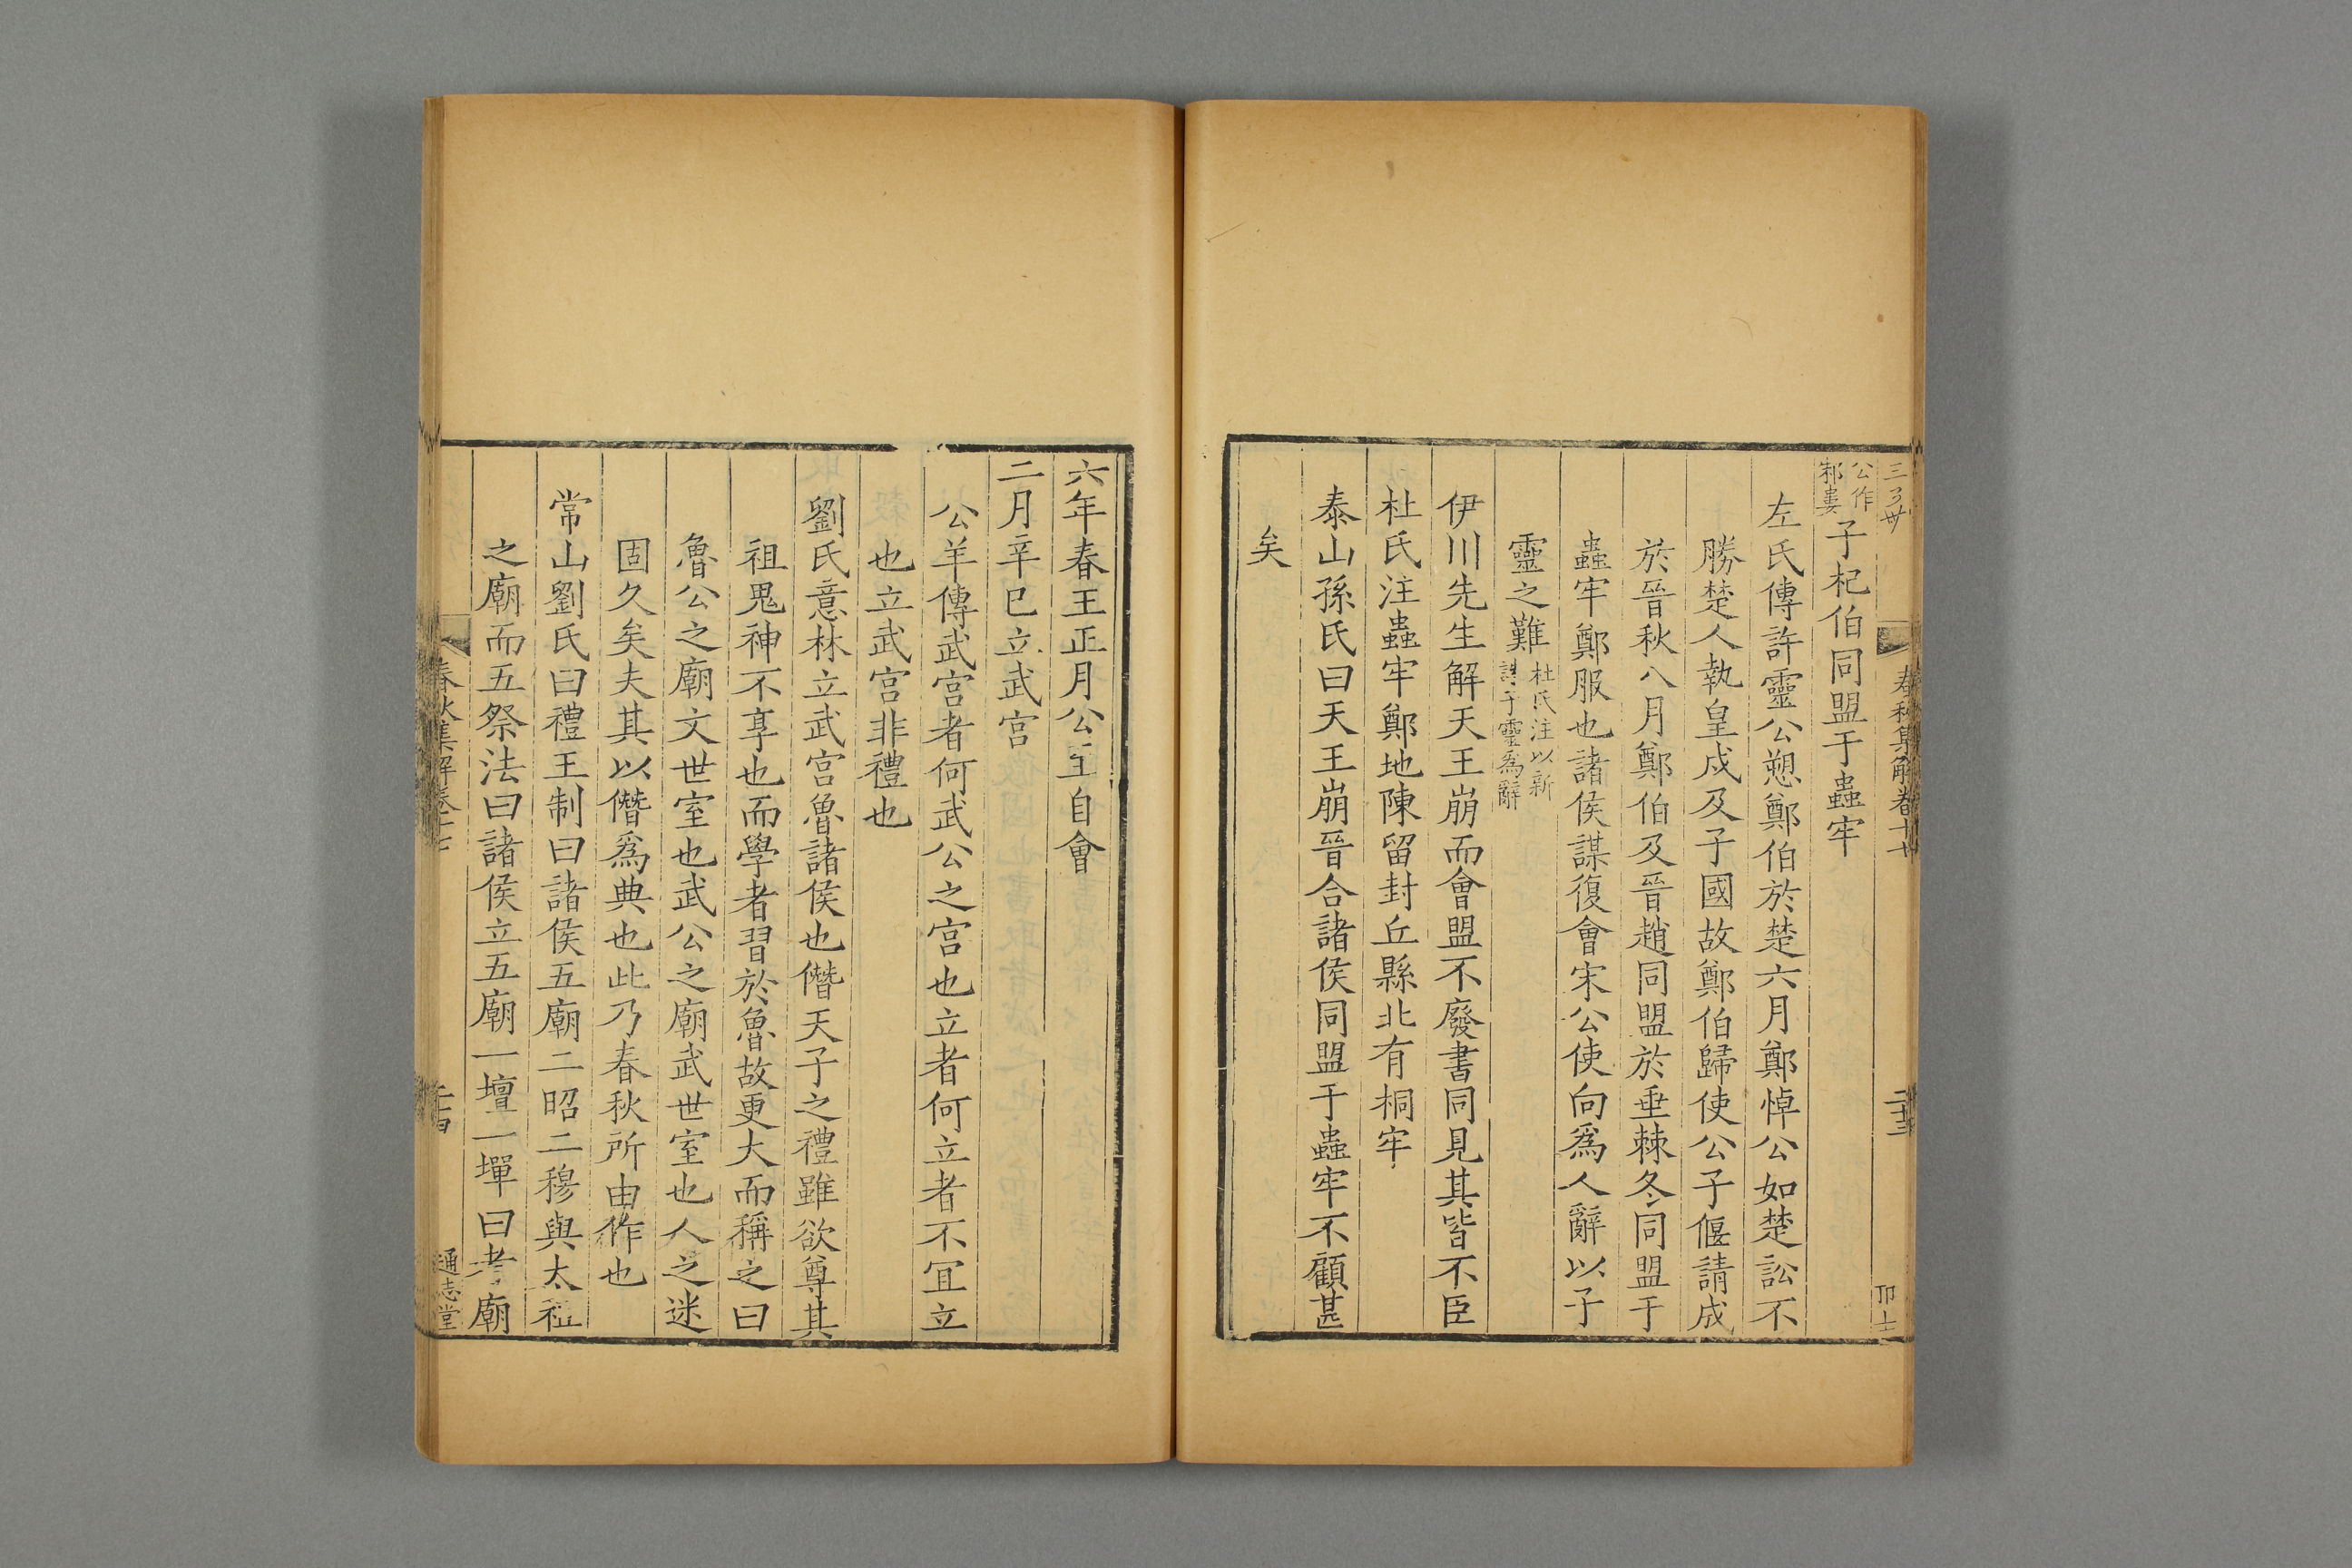 春秋集解卷十七
二十三
公作邾婁子杞伯同盟于蟲牢
左氏傳許靈公愬鄭伯於楚六月鄭悼公如楚訟不
勝楚人執皇戌及子國故鄭伯歸使公子偃請成
於晉秋八月鄭伯及晉趙同盟於垂棘冬同盟于
蟲牢鄭服也諸侯謀復會宋公使向爲人辭以子
靈之難杜氏注以新誅子靈爲辭
伊川先生解天王崩而會盟不廢書同見其皆不臣
杜氏注蟲牢鄭地陳留封丘縣北有桐牢
泰山孫氏曰天王崩晉合諸侯同盟于蟲牢不顧甚
矣
六年春王正月公至自會
二月辛巳立武宮
公羊傳武宮者何武公之宮也立者何立者不宜立
也立武宮非禮也
劉氏意林立武宮魯諸侯也僭天子之禮雖欲尊其
祖鬼神不享也而學者習於魯故更大而稱之曰
魯公之廟文世室也武公之廟武世室也人之迷
固久矣夫其以僭爲典也此乃春秋所由作也
常山劉氏曰禮王制曰諸侯五廟二昭二穆與太祖
之廟而五祭法曰諸侯立五廟一壇一墠曰考廟
春秋集解卷十七
二十四
通志堂